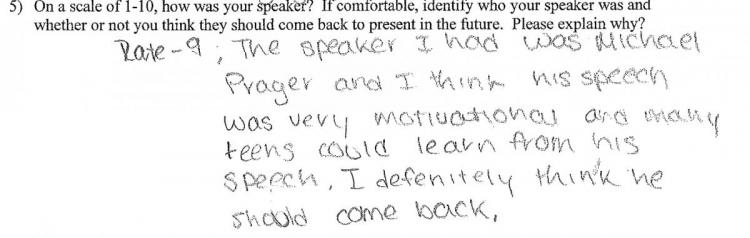 5) On a scale of 1-10, how was your speaker? If comfortable, identify who your speaker was and
whether or not you think they should come back to present in the future. Please explain why?
Rate - 9 ; The speaker I had was Michael
Prager and I think his speech
was very motivational and many
teens could learn from his
speech, I defenitely think he
should come back,